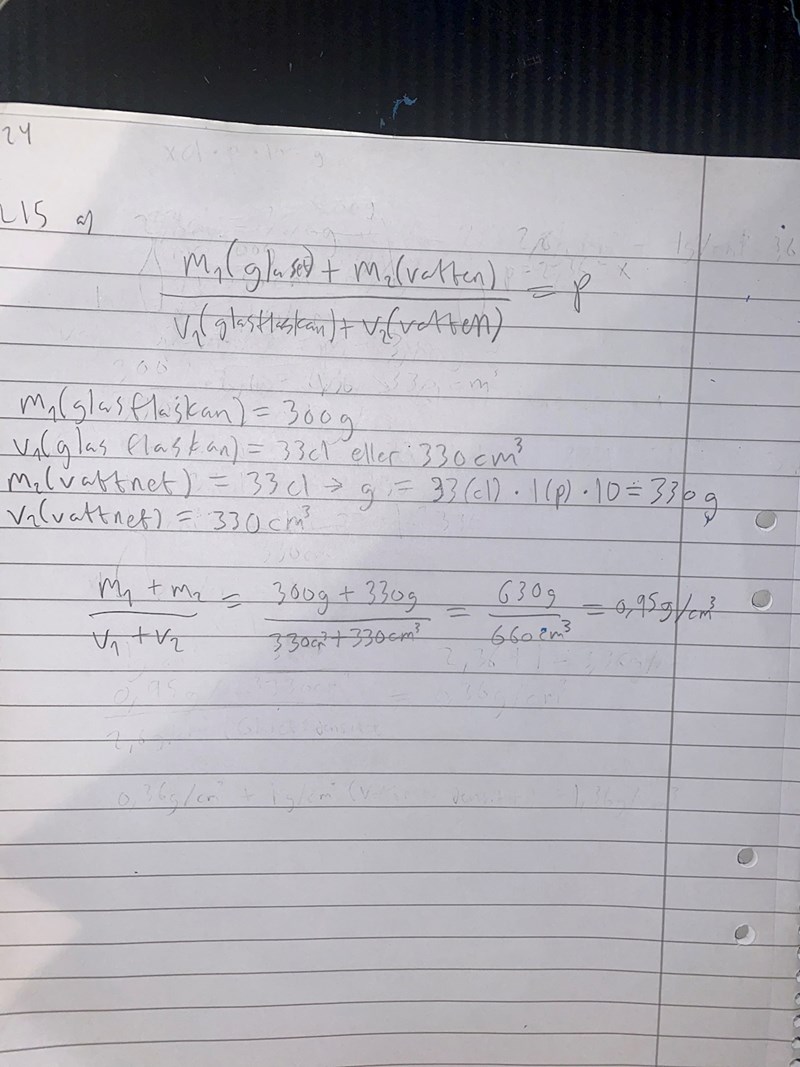 24
L15 a)
m₁(glaset) + m₂(vatten)
――――――――――――― = ρ
V₁(glasflaskan) + V₂(vatten)
m₁(glasflaskan) = 300g
V₁(glas flaskan) = 33cl eller 330cm³
m₂(vattnet) = 33cl → g = 33(cl) · 1(ρ) · 10 = 330g
V₂(vattnet) = 330cm³
(m₁ + m₂)/(V₁ + V₂) = (300g + 330g)/(330cm³ + 330cm³) = 630g/660cm³ = 0,95g/cm³